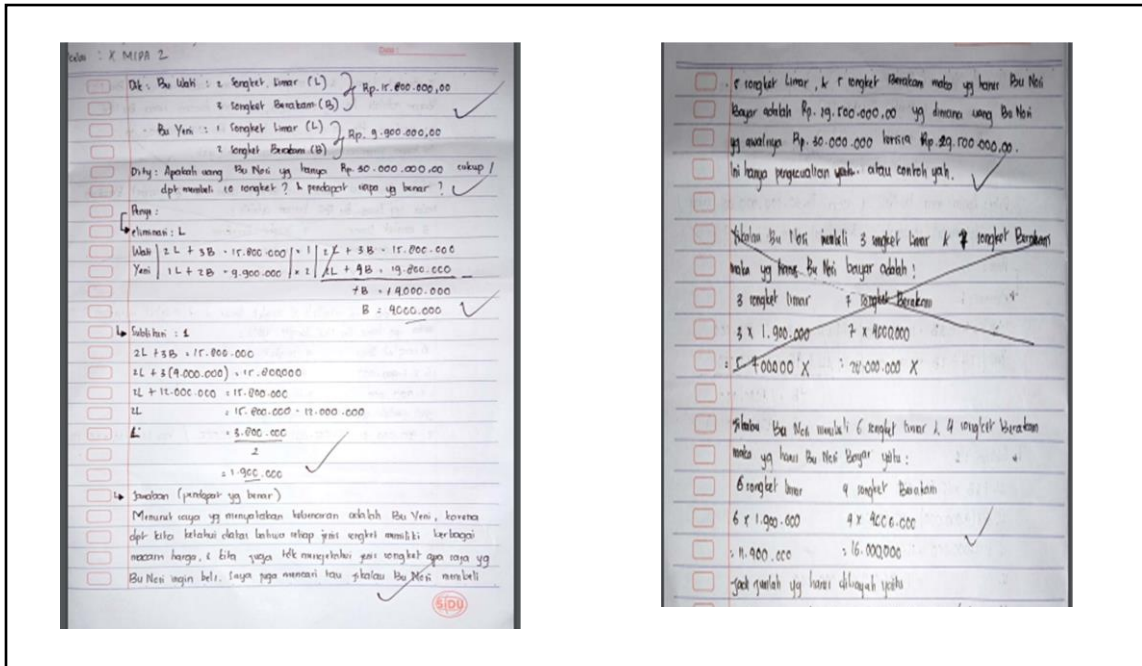 Kelas : X MIPA 2
Dik : Bu Wati : 2 Songket Limar (L) } Rp. 15.800.000,00
3 Songket Berakam (B)
Bu Yeni : 1 Songket Limar (L) } Rp. 9.900.000,00
2 Songket Berakam (B)
Dity : Apakah uang Bu Nesi yg hanya Rp. 30.000.000,00 cukup /
dpt membeli 10 songket ? & pendapat siapa yg benar ?
Penye :
eliminasi : L
Wati | 2L + 3B = 15.800.000 | x 1 | 2L + 3B = 15.800.000
Yeni | 1L + 2B = 9.900.000 | x 2 | 2L + 4B = 19.800.000
B = 4000.000
Subtitusi : 1
2L + 3B = 15.800.000
2L + 3(4.000.000) = 15.800000
2L + 12.000.000 = 15.800.000
2L = 15.800.000 - 12.000.000
L = 3.800.000
2
= 1.900.000
Jawaban (pendapat yg benar)
Menurut saya yg menyatakan kebenaran adalah Bu Yeni, karena
dpt kita ketahui diatas bahwa setiap jenis songket memiliki berbagai
macam harga, & kita juga tdk mengetahui jenis songket apa saja yg
Bu Nesi ingin beli. Saya juga mencari tau jikalau Bu Nesi membeli
SIDU
5 songket Limar, & 5 songket Berakam maka yg harus Bu Nesi
Bayar adalah Rp. 29.500.000,00 yg dimana uang Bu Nesi
yg awalnya Rp. 30.000.000 tersisa Rp. 29.500.000,00.
Ini hanya pengecualian atau contoh yah.
Jikalau Bu Nesi membeli 3 songket Limar & 7 songket Berakam
maka yg harus Bu Nesi bayar adalah :
3 songket limar 7 songket Berakam
3 x 1.900.000 7 x 4000.000
= 5.700000 X = 28.000.000 X
Jikalau Bu Nesi membeli 6 songket limar & 4 songket berakam
maka yg harus Bu Nesi Bayar yaitu :
6 songket limar 4 songket Berakam
6 x 1.900.000 4 x 4000.000
= 11.400.000 = 16.000.000
Jadi jumlah yg harus dibayah yaitu